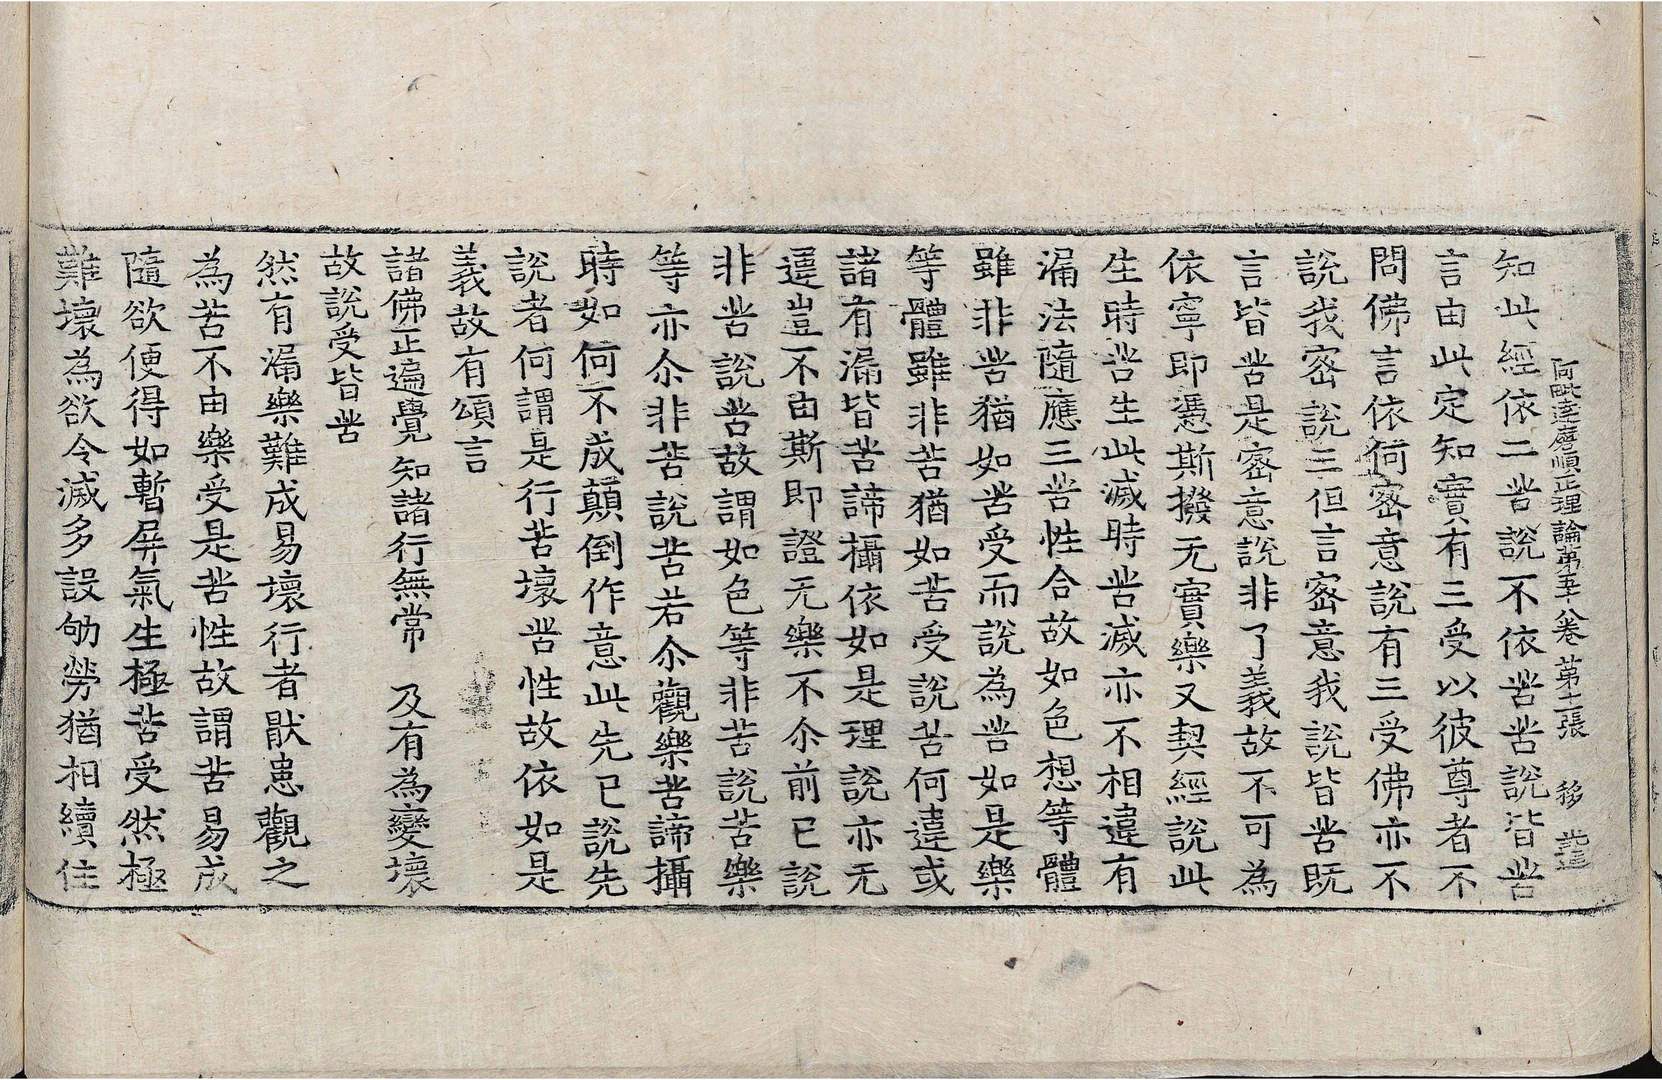 阿毗達磨順正理論第五十八卷 第十二張 移
知此經依二苦說不依苦苦說皆苦
言由此定知實有三受以彼尊者不
問佛言依何密意說有三受佛亦不
說我密說三但言密意我說皆苦既
言皆苦是密意說非了義故不可為
依寧即憑斯撥无實樂又契經說此
生時苦生此滅時苦滅亦不相違有
漏法隨應三苦性合故如色想等體
雖非苦猶如苦受而說為苦如是樂
等體雖非苦猶如苦受說苦何違或
諸有漏皆苦諦攝依如是理說亦无
違豈不由斯即證无樂不尒前已說
非苦說苦故謂如色等非苦說苦樂
等亦尒非苦說苦若尒觀樂苦諦攝
時如何不成顛倒作意此先已說先
說者何謂是行苦壞苦性故依如是
義故有頌言
諸佛正遍覺知諸行無常 及有為變壞
故說受皆苦
然有漏樂難成易壞行者猒患觀之
為苦不由樂受是苦性故謂苦易成
隨欲便得如暫屏氣生極苦受然極
難壞為欲令滅多設劬勞猶相續住